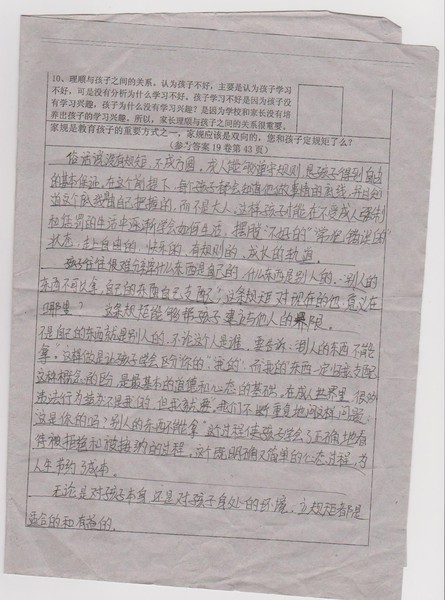 10、理顺与孩子之间的关系，认为孩子不好，主要是认为孩子学习
不好，可是没有分析为什么学习不好。孩子学习不好是因为孩子没
有学习兴趣，孩子为什么没有学习兴趣？是因为学校和家长没有培
养出孩子的学习兴趣。所以，家长理顺与孩子之间的关系很重要。
家规是教育孩子的重要方式之一，家规应该是双向的，您和孩子定规矩了么？
（参考答案19卷第43页）
俗话说没有规矩，不成方圆，成人能够遵守规则，是孩子得到自由
的基本保证，在这个前提下，每个孩子都会知道他做事情的底线，并且知
道这个底线是自己把握的，而不是大人。这样孩子才能在不受成人牵制
和惩罚的生活中逐渐学会如何生活，摆脱
状态，走上自由的、快乐的、有规则的、成长的轨道。
孩子往往很难分清楚什么东西是自己的，什么东西是别人的。“别人的
东西不可以拿，自己的东西自己支配”，这条规矩对现在的他意义在
哪里？ 这条规矩能够帮孩子建立与他人的界限。
不是自己的东西就是别人的，不论这个人是谁，要告诉：“别人的东西不能
拿。”这样做是让孩子学会区分“你的”“我的”，而我的东西一定归我支配，
这种概念的区分，是最基本的道德和心态的基础。在成人世界里，很多
违法行为
这是你的吗？别人的东西不能拿”的过程使孩子学会了正确地看
待被拒绝和被接纳的过程。这个既明确又简单的心态过程，为
人生节约了成本。
无论是对孩子本身还是对孩子身处的环境，立规矩都是
适合的和有益的。